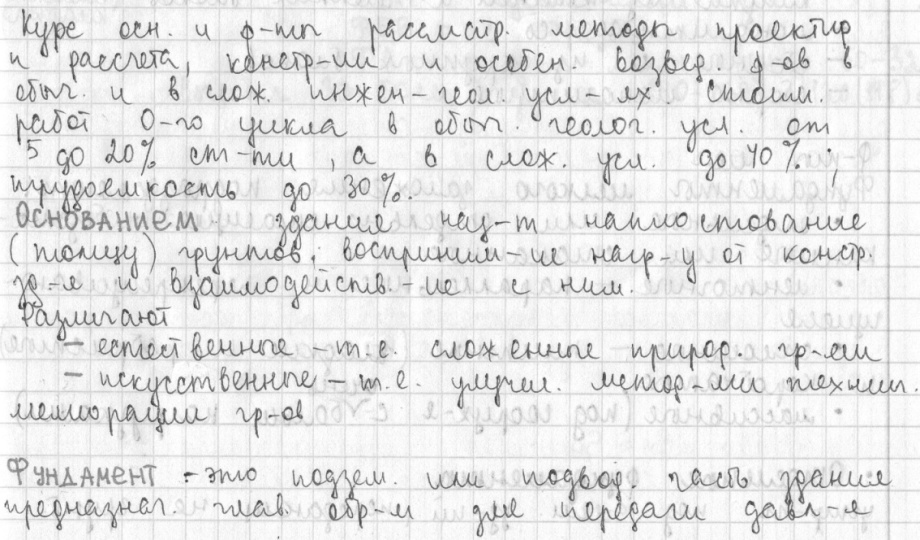 Курс осн. и ф-ты рассматр. методы проектир
и рассчета, констр-ии и особен. возвед. ф-ов в
обыч. и в слож. инжен-геол. усл-ях. Стоим.
работ 0-го цикла в обыч. геолог. усл. от
5 до 20% ст-ти, а в слож. усл. до 40%;
трудоемкость до 30%.
ОСНОВАНИЕМ здания наз-т напластование
(толщу) грунтов, восприним-ие нагр-у от констр.
зд-я и взаимодейств-ие с ним.
Различают
– естественные – т.е. сложенные природ. гр-ми
– искусственные – т.е. улучш. метод-ми технич.
мелиорации гр-ов
ФУНДАМЕНТ – это подзем. или подвод часть здания
предназнач. глав обр-м для передачи давл-я